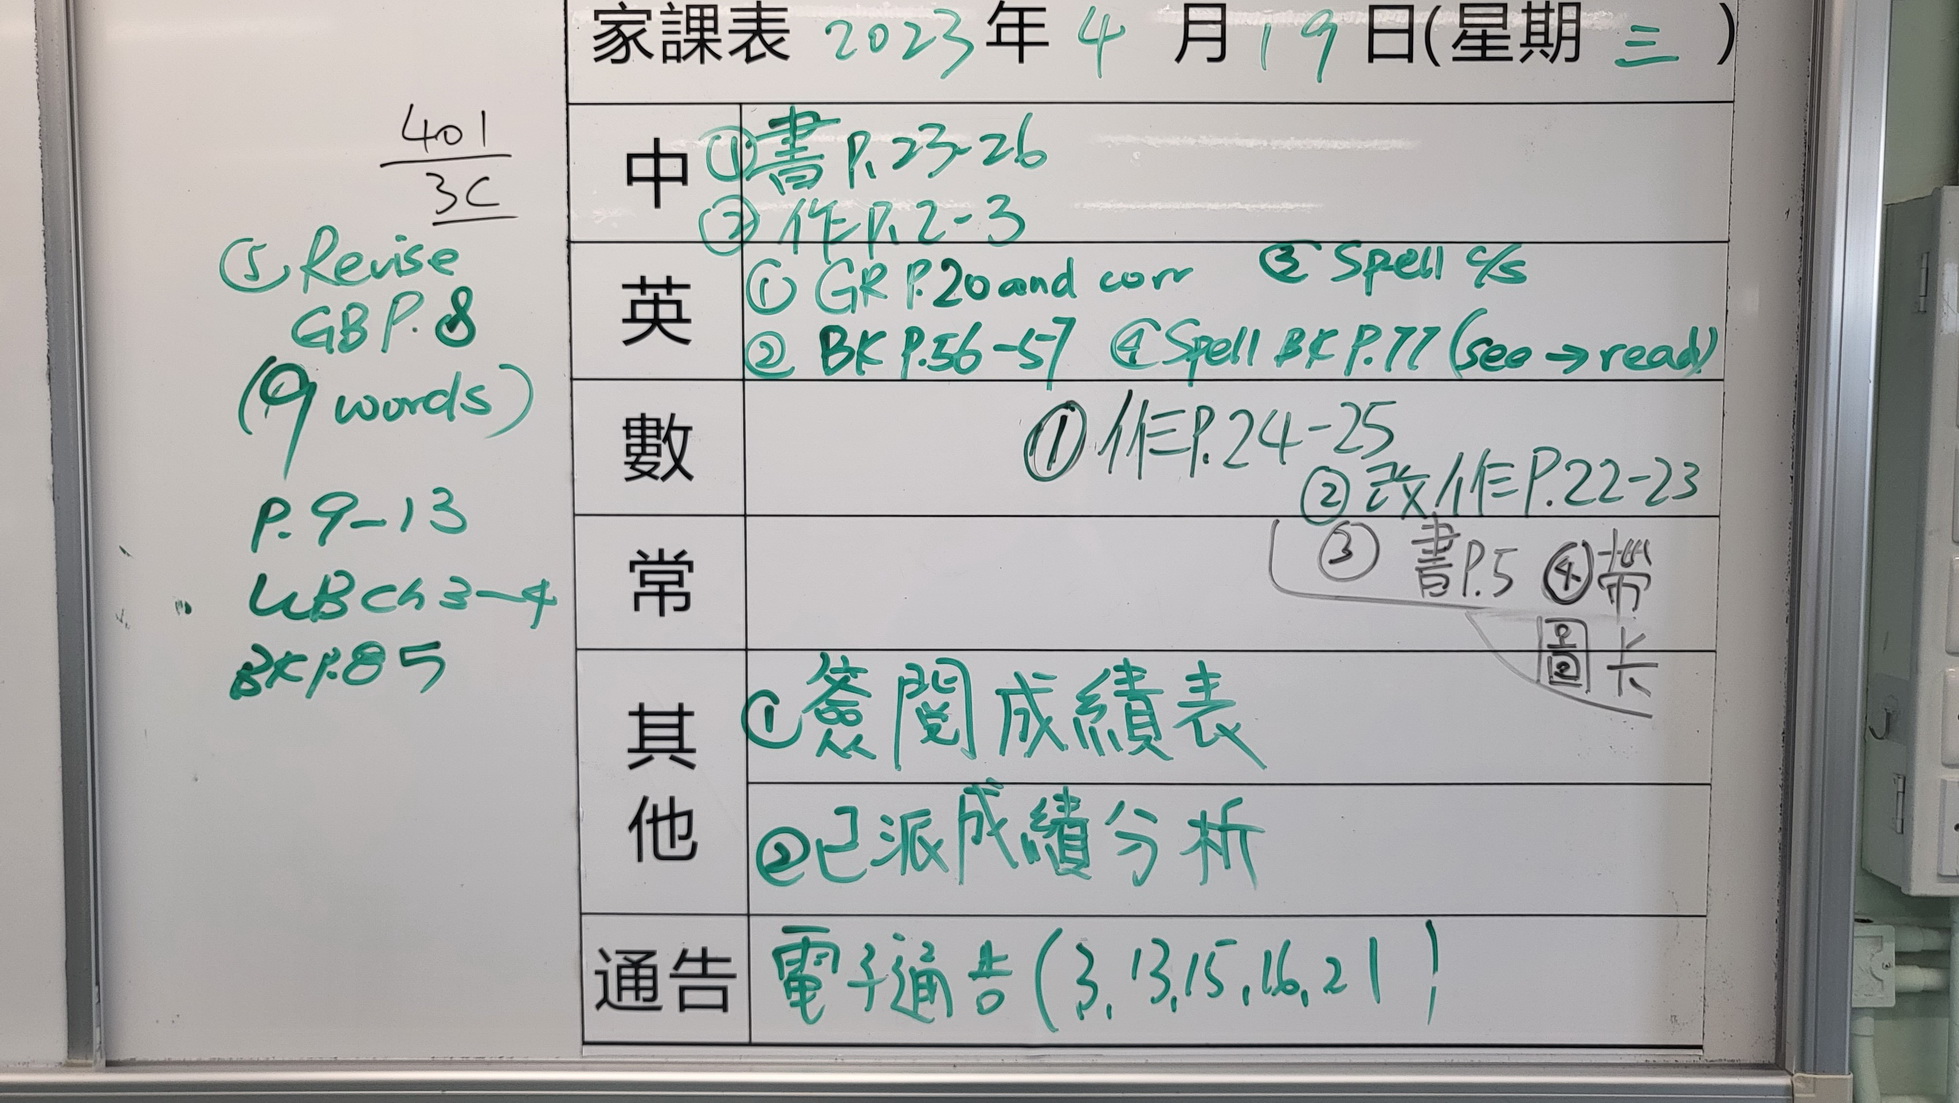 家課表 2023年 4 月 19 日(星期 三 )
401
3C
中 ①書 P.23-26
② 作 P.2-3
英 ① GR P.20 and corr ③ Spell c/s
② BK P.56-57 ④ Spell BK P.77 (see → read)
⑤ Revise
GB P.8
(9 words)
P.9-13
WB ch 3-4
BK P.85
數 ① 作 P.24-25
② 改作 P.22-23
③ 書 P.5 ④ 帶
圖卡
常
其他 ① 簽閱成績表
② 已派成績分析
通告 電子通告 (3,13,15,16,21)